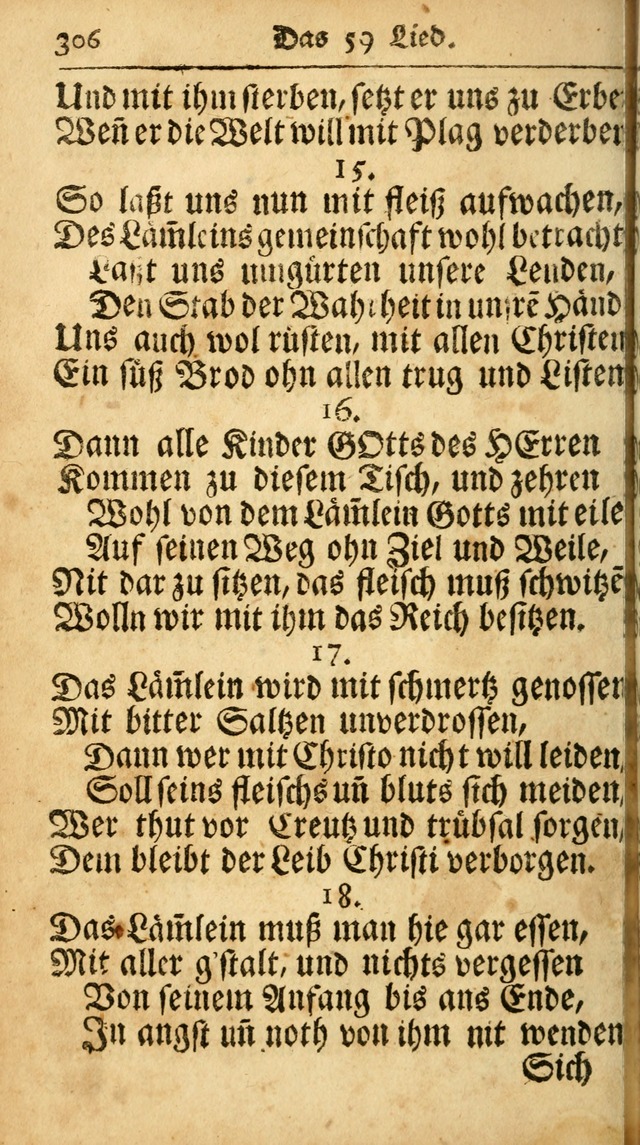 306 Das 59 Lied.
Und mit ihm sterben, setzt er uns zu Erbe
Weñ er die Welt will mit Plag verderben
15.
So laßt uns nun mit fleiß aufwachen,
Des Läm̃leins gemeinschaft wohl betracht
Laßt uns umgürten unsere Lenden,
Den Stab der Wahrheit in unsrẽ Händ
Uns auch wol rüsten, mit allen Christen
Ein süß Brod ohn allen trug und Listen
16.
Dann alle Kinder GOtts des HErren
Kommen zu diesem Tisch, und zehren
Wohl von dem Läm̃lein Gotts mit eile
Auf seinen Weg ohn Ziel und Weile,
Nit dar zu sitzen, das fleisch muß schwitzẽ
Wolln wir mit ihm das Reich besitzen.
17.
Das Läm̃lein wird mit schmertz genossen
Mit bitter Saltzen unverdrossen,
Dann wer mit Christo nicht will leiden,
Soll seins fleischs uñ bluts sich meiden,
Wer thut vor Creutz und trübsal sorgen,
Dem bleibt der Leib Christi verborgen.
18.
Das Läm̃lein muß man hie gar essen,
Mit aller g'stalt, und nichts vergessen
Von seinem Anfang bis ans Ende,
In angst uñ noth von ihm nit wenden
Sich